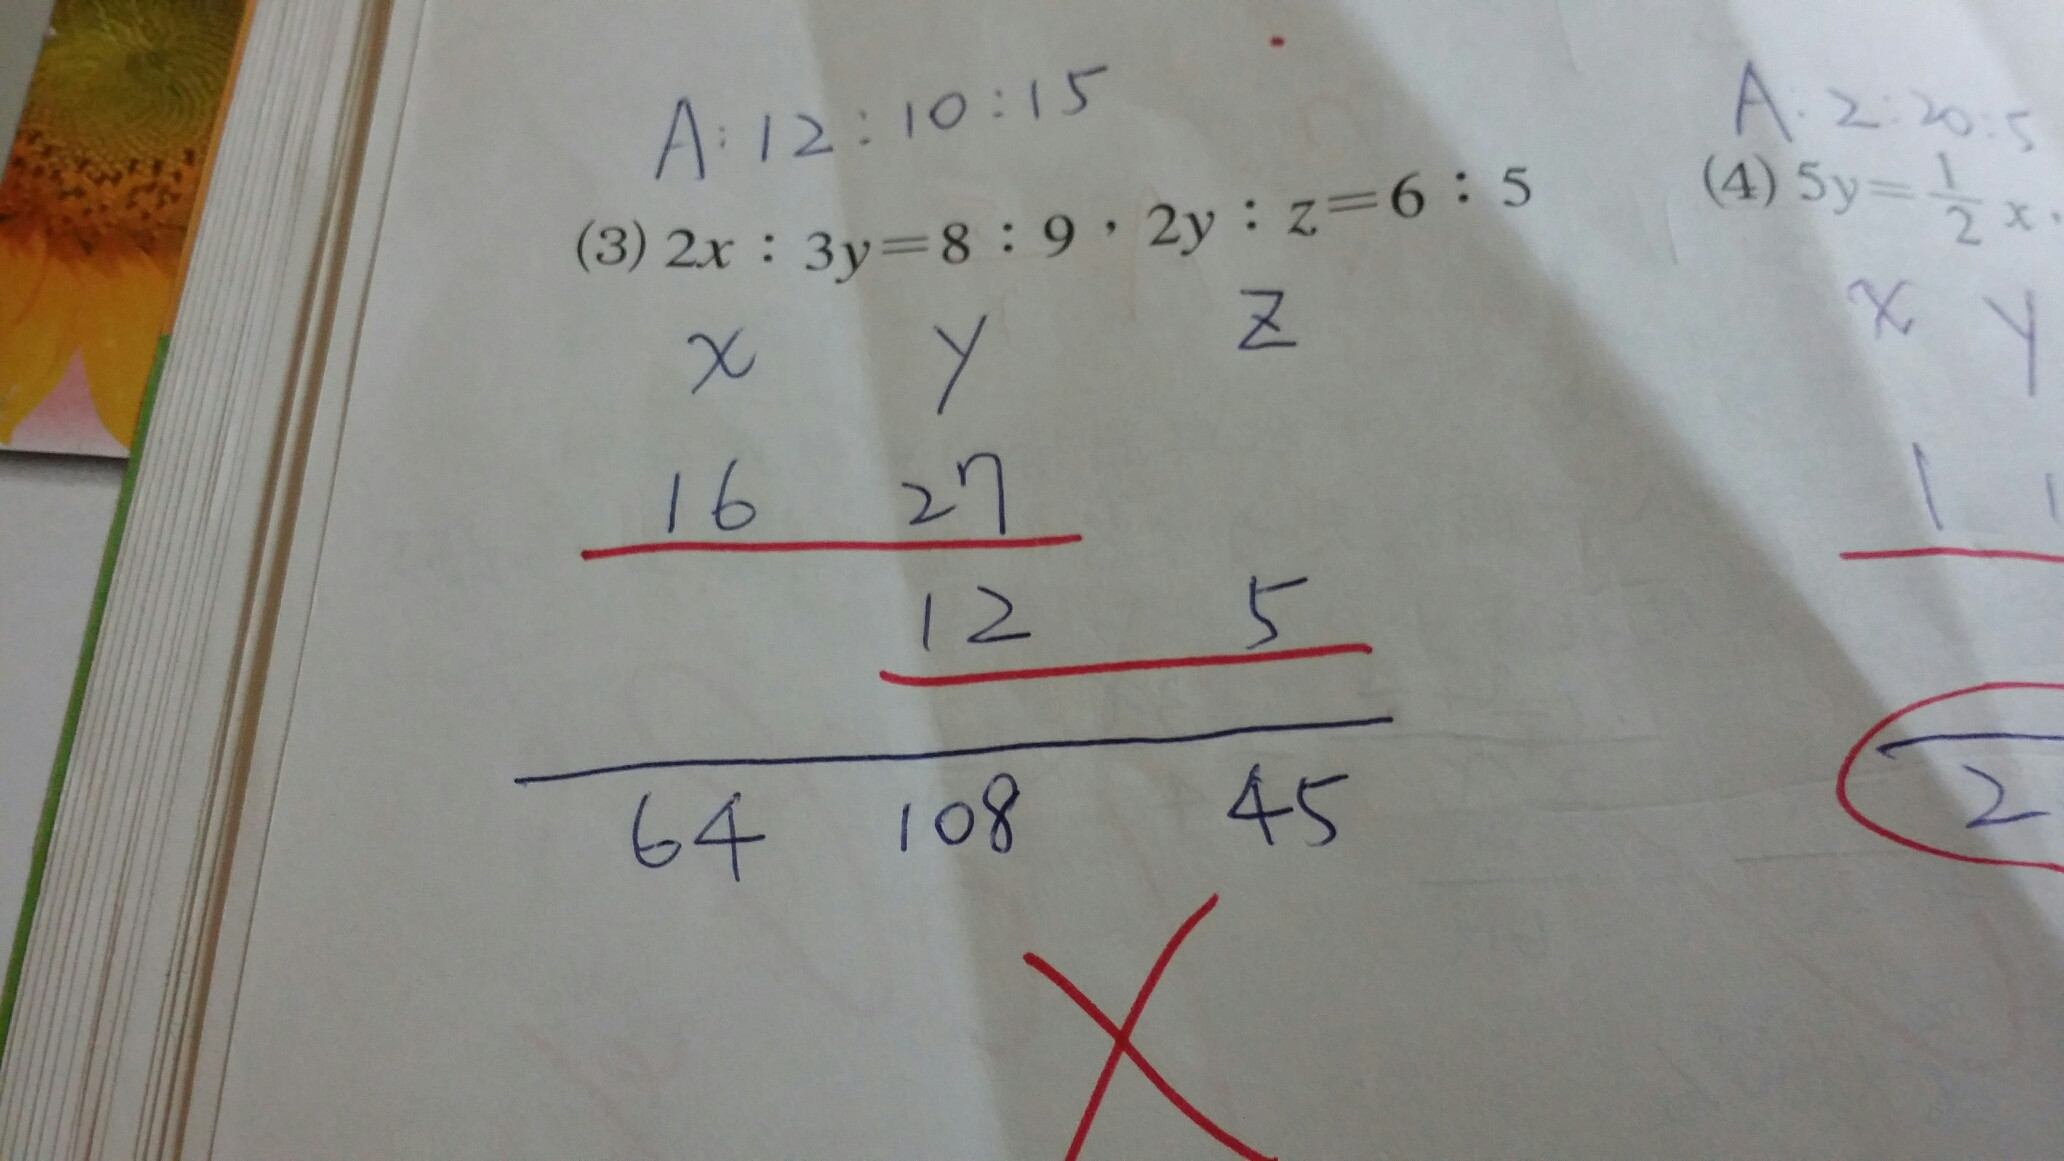 A:12:10:15
A:2:20:5
(3) 2x：3y=8：9，2y：z=6：5
(4) 5y=1/2 x,
x y z
x y
16 27
1 1
12 5
64 108 45
2